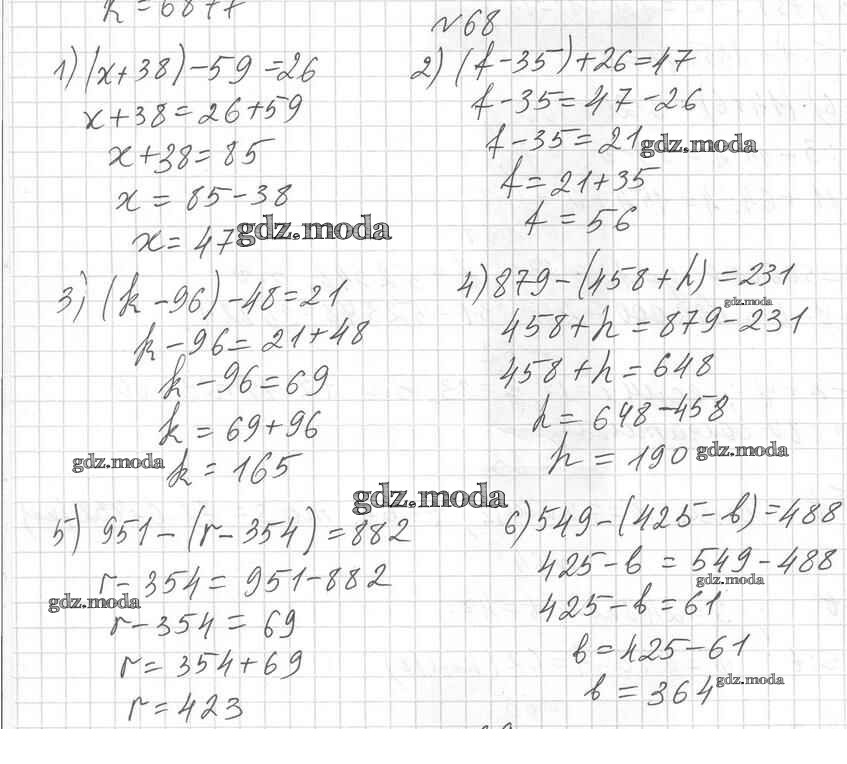 k = 68+7
№68
1) (x+38)-59=26
x+38=26+59
x+38=85
x=85-38
x=47
gdz.moda
2) (f-35)+26=47
f-35=47-26
f-35=21
gdz.moda
f=21+35
f=56
3) (k-96)-48=21
k-96=21+48
k-96=69
k=69+96
gdz.moda
k=165
4) 879-(458+h)=231
gdz.moda
458+h=879-231
458+h=648
h=648-458
h=190
gdz.moda
gdz.moda
5) 951-(r-354)=882
r-354=951-882
gdz.moda
r-354=69
r=354+69
r=423
6) 549-(425-b)=488
425-b=549-488
gdz.moda
425-b=61
b=425-61
b=364
gdz.moda